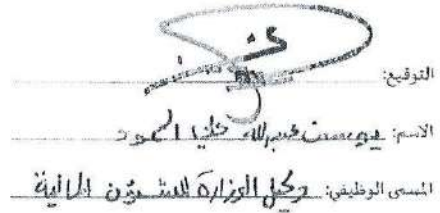 التوقيع:
الاسم: يوسف عبدالله حمود
المسمى الوظيفي: وكيل الوزارة للشؤون المالية